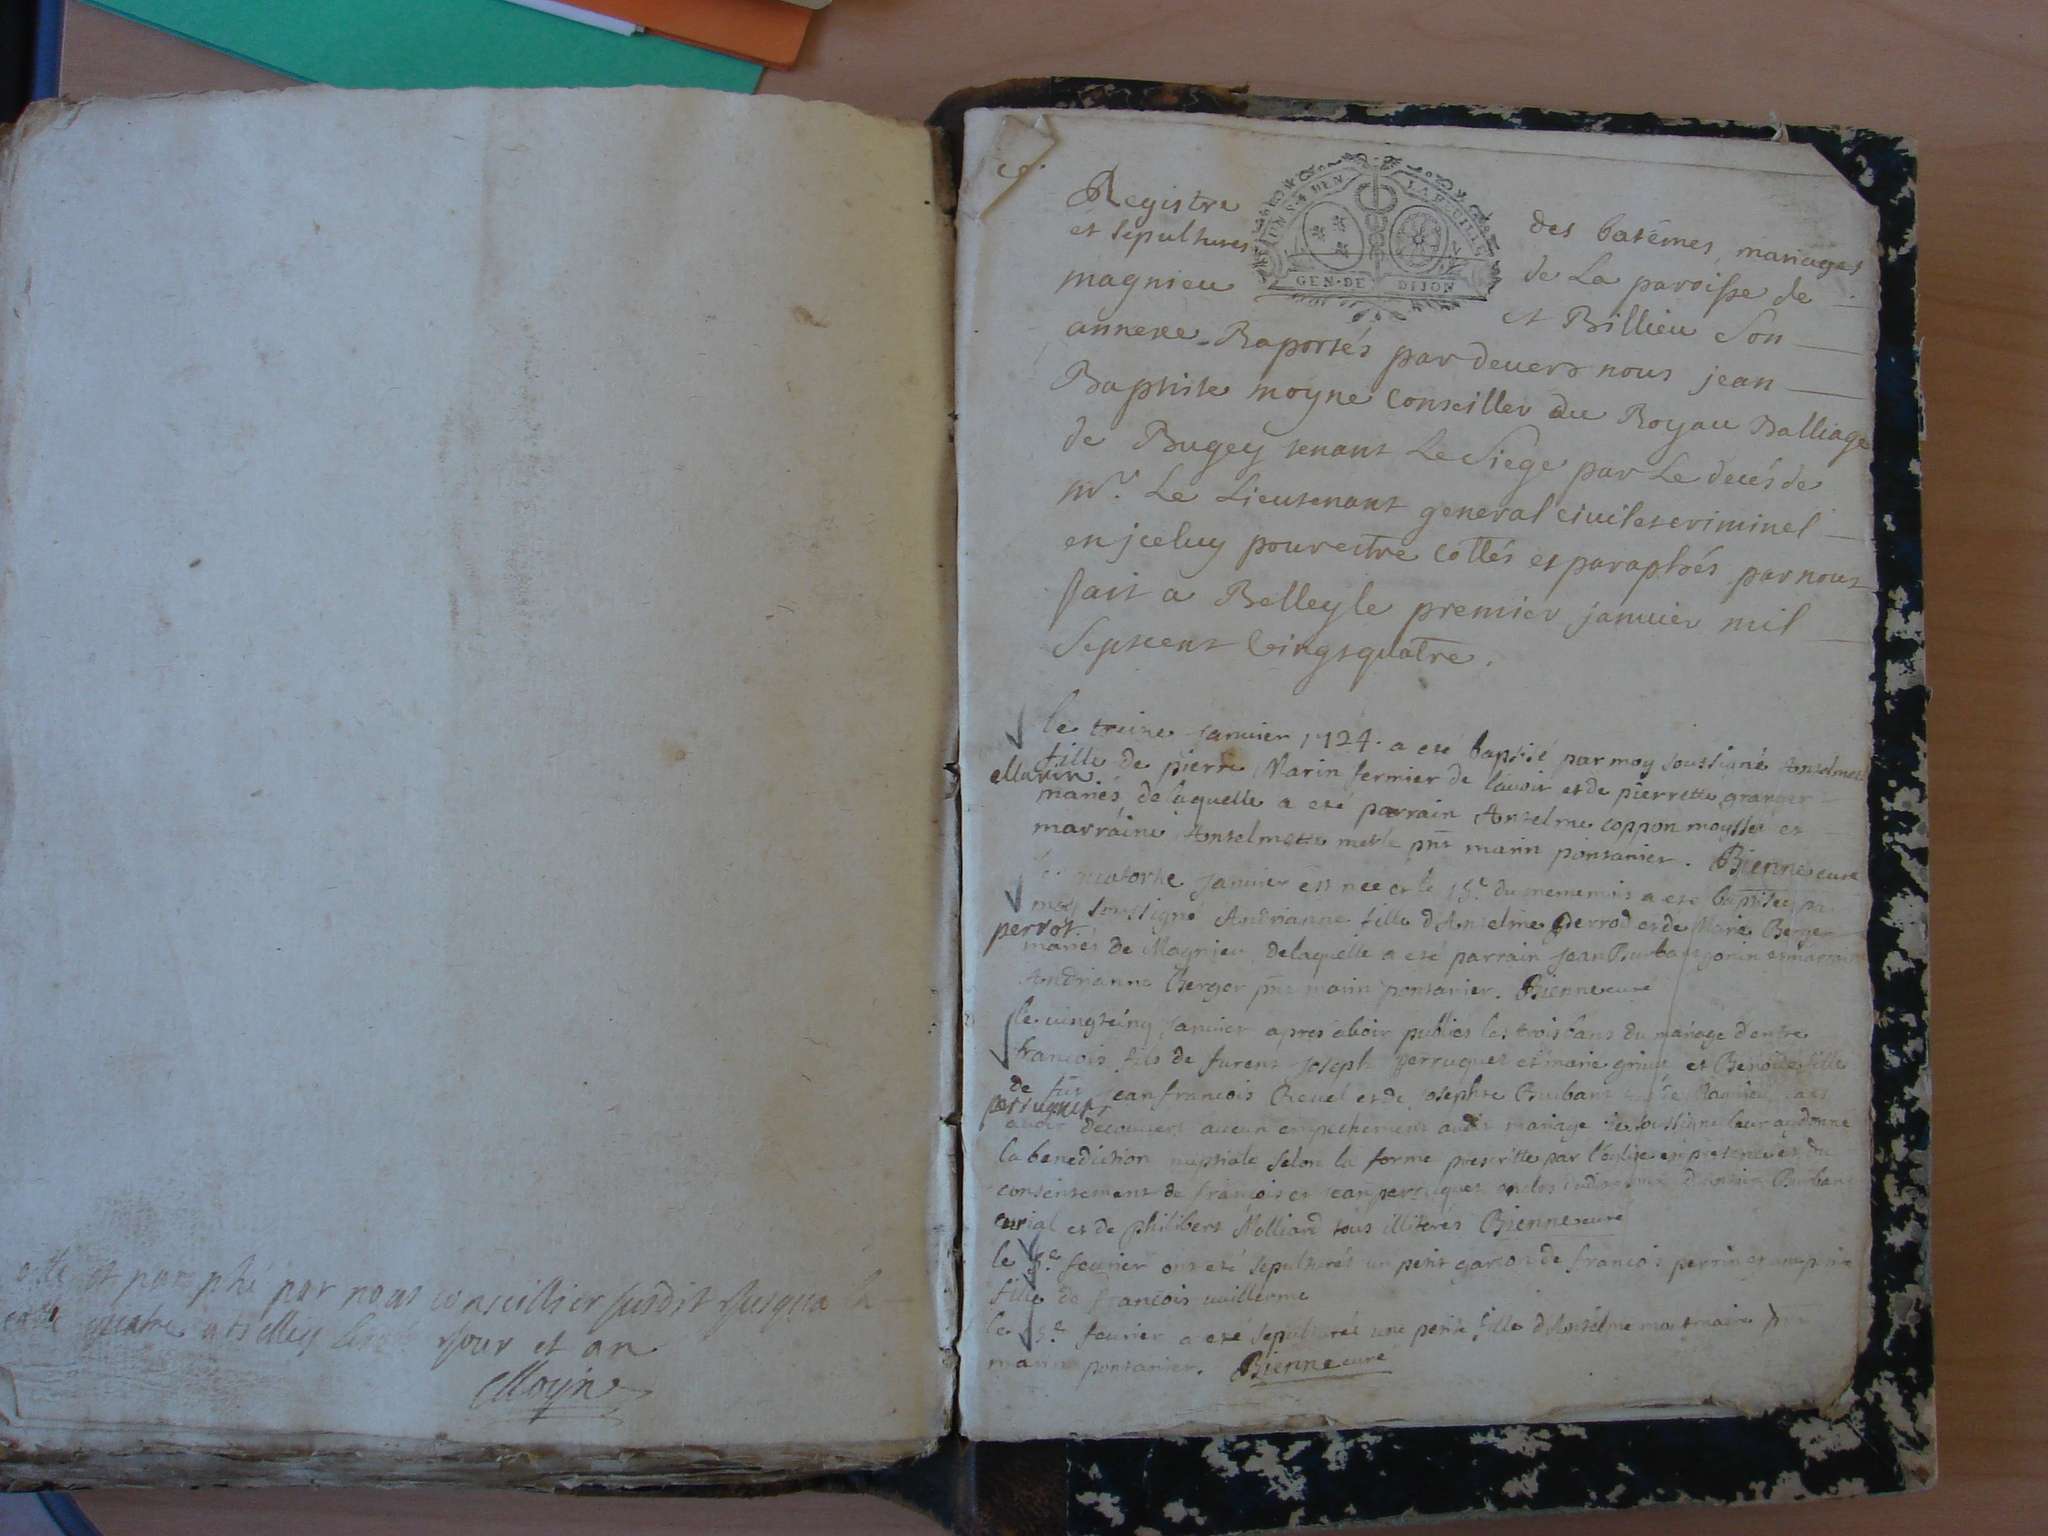 par nous conseillier susdit jusqua
quatre a belley jour et an
Moyne
Registre des batêmes, mariages
et sepultures de La paroisse de
magnieu et Billieu Son
annexe Raportés par devers nous jean
Baptiste moyne Conseiller Au Royau Balliage
de Bugey tenant Le Siege par Le decés de
Mr. Le Lieutenant general civil et criminel
en jceluy pour estre côttés et paraphés par nous
fait a Belley le premier janvier mil
Septcent Vingtquatre.
GEN·DE DIJON
le treize janvier 1724. a eté baptisé par moy soussigné Anselmette
fille de pierre Marin fermier de lavoir et de pierrette granger
Marin
mariés, de laquelle a eté parrain Anselme coppon moysset et
marraine Anselmette pnt marin pontanier. Bienne curé
quatorze janvier est nee et le 15e du meme mois a eté baptisée par
moy soussigné Andrianne fille d'Anselme perrod et de Marie Berger
perrot
mariés de Magnieu, de laquelle a eté parrain jean Burbant et marraine
Andrianne Berger pnt marin pontanier. Bienne curé
le vingtcinq janvier apres avoir publiés les trois bans du mariage d'entre
francois fils de furent joseph perruquet et marie et Benoite fille
de fut jean francois Revel et de josephte Burbant de Magnieu sans
perruquet
avoir decouvert aucun empechement audit mariage je soussigné leur ay donné
la benediction nuptiale selon la forme prescritte par l'église en presence et du
consentement de francois et jean perruquet Burbant
curial et de philibert Molliard tous illiterés Bienne curé
le 3e fevrier ont eté sepulturés un petit garson de francois perrin et une petite
fille de francois vuillerme
le 5e fevrier a eté sepulturée une petite fille d'Anselme pnt
marin pontanier. Bienne curé